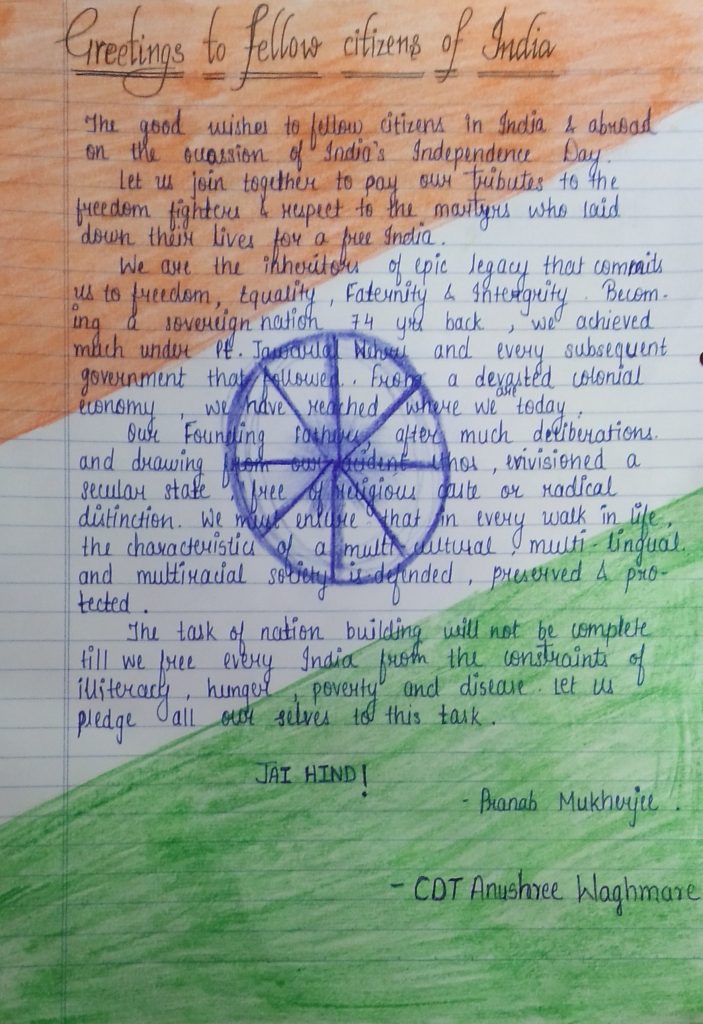 Greetings to fellow citizens of India
The good wishes to fellow citizens in India & abroad
on the ouassion of India's Independence Day.
Let us join together to pay our tributes to the
freedom fighters & respect to the martyrs who laid
down their lives for a free India.
We are the inheritors of epic legacy that commits
us to freedom, Equality, Faternity & Intergrity. Becom-
ing a sovereign nation 74 yrs back, we achieved
much under Pt. Jawarlal Nehru and every subsequent
government that followed. From a devasted colonial
economy, we have reached where we are today.
Our Founding fathers, after much deliberations.
and drawing from our acident ethos, envisioned a
secular state, free of religious caste or radical
distinction. We must ensure that in every walk in life,
the characteristics of a multi cultural, multi-lingual
and multiracial society is defended, preserved & pro-
tected.
The task of nation building will not be complete
till we free every India from the constraints of
illiteracy, hunger, poverty and disease. Let us
pledge all our selves to this task.
JAI HIND!
- Pranab Mukherjee.
- CDT Anushree Waghmare